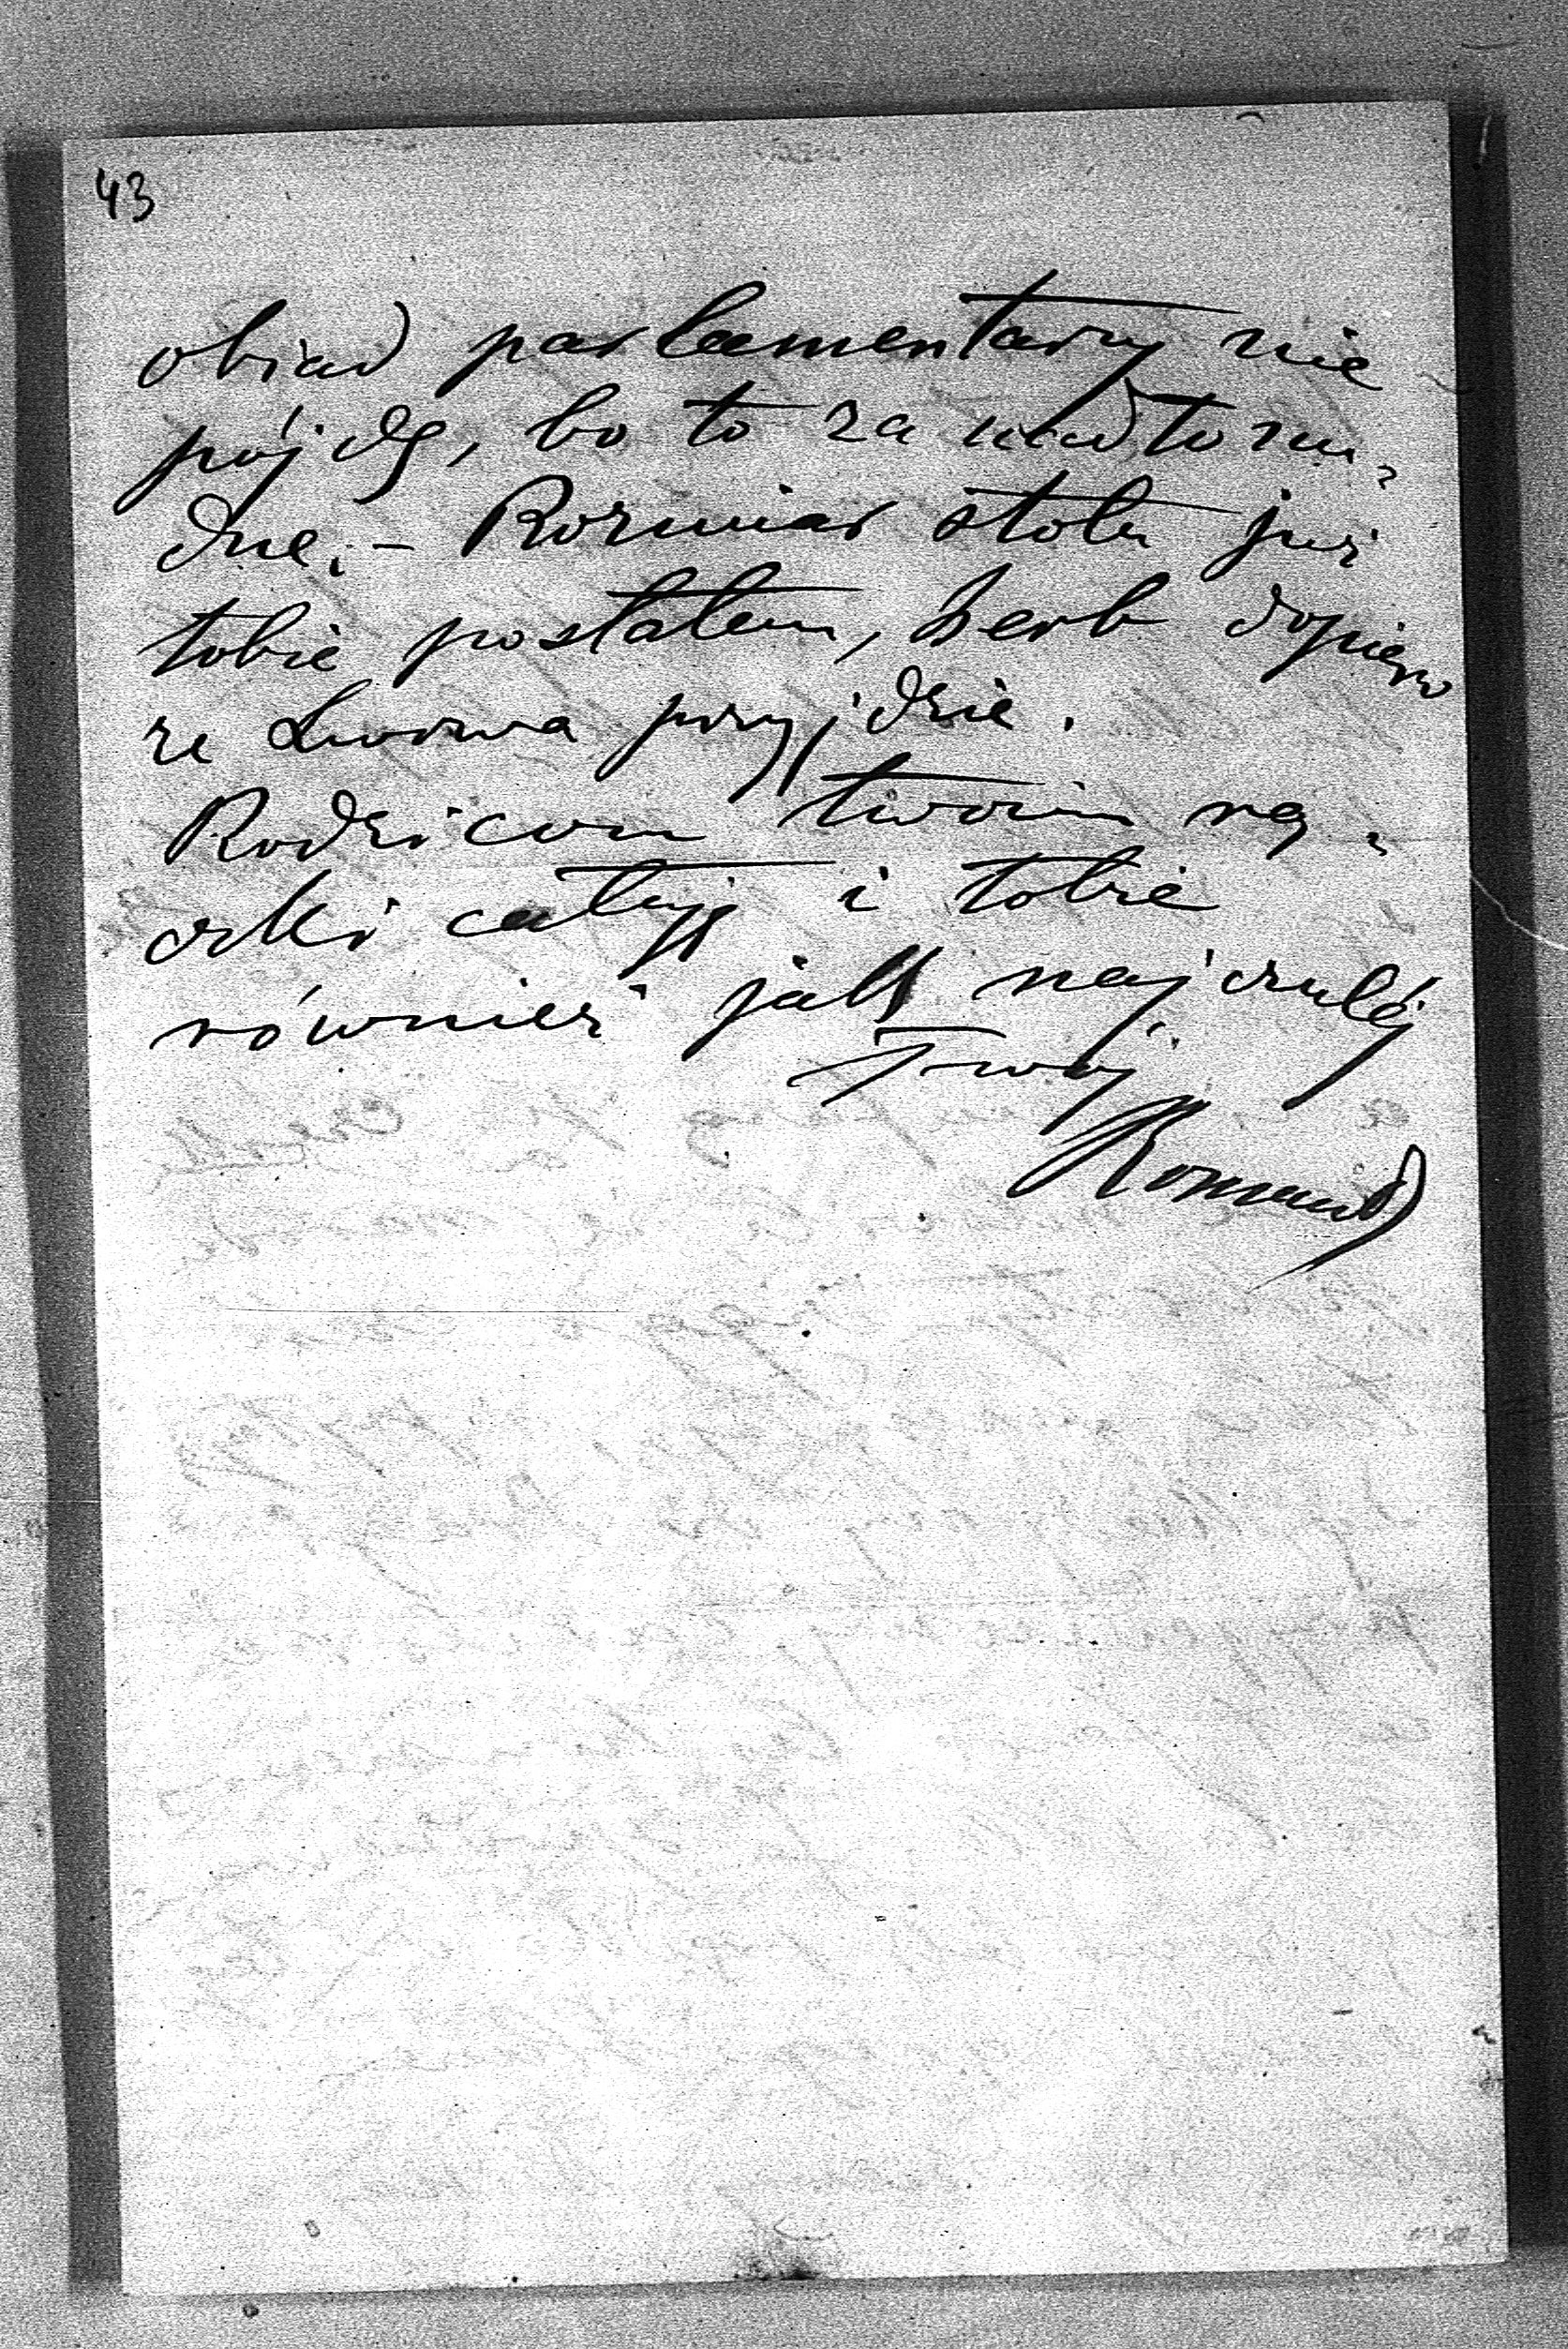 43
obiad parlamentarny nie
pójdę, bo to za nadto nu-
dne. – Rozmiar stołu już
tobie posłałem, herb dopiero
ze Lwowa przyjdzie.
Rodzicom twoim rą-
czki całuję i tobie
również jak najczuléj
Twój
Roman